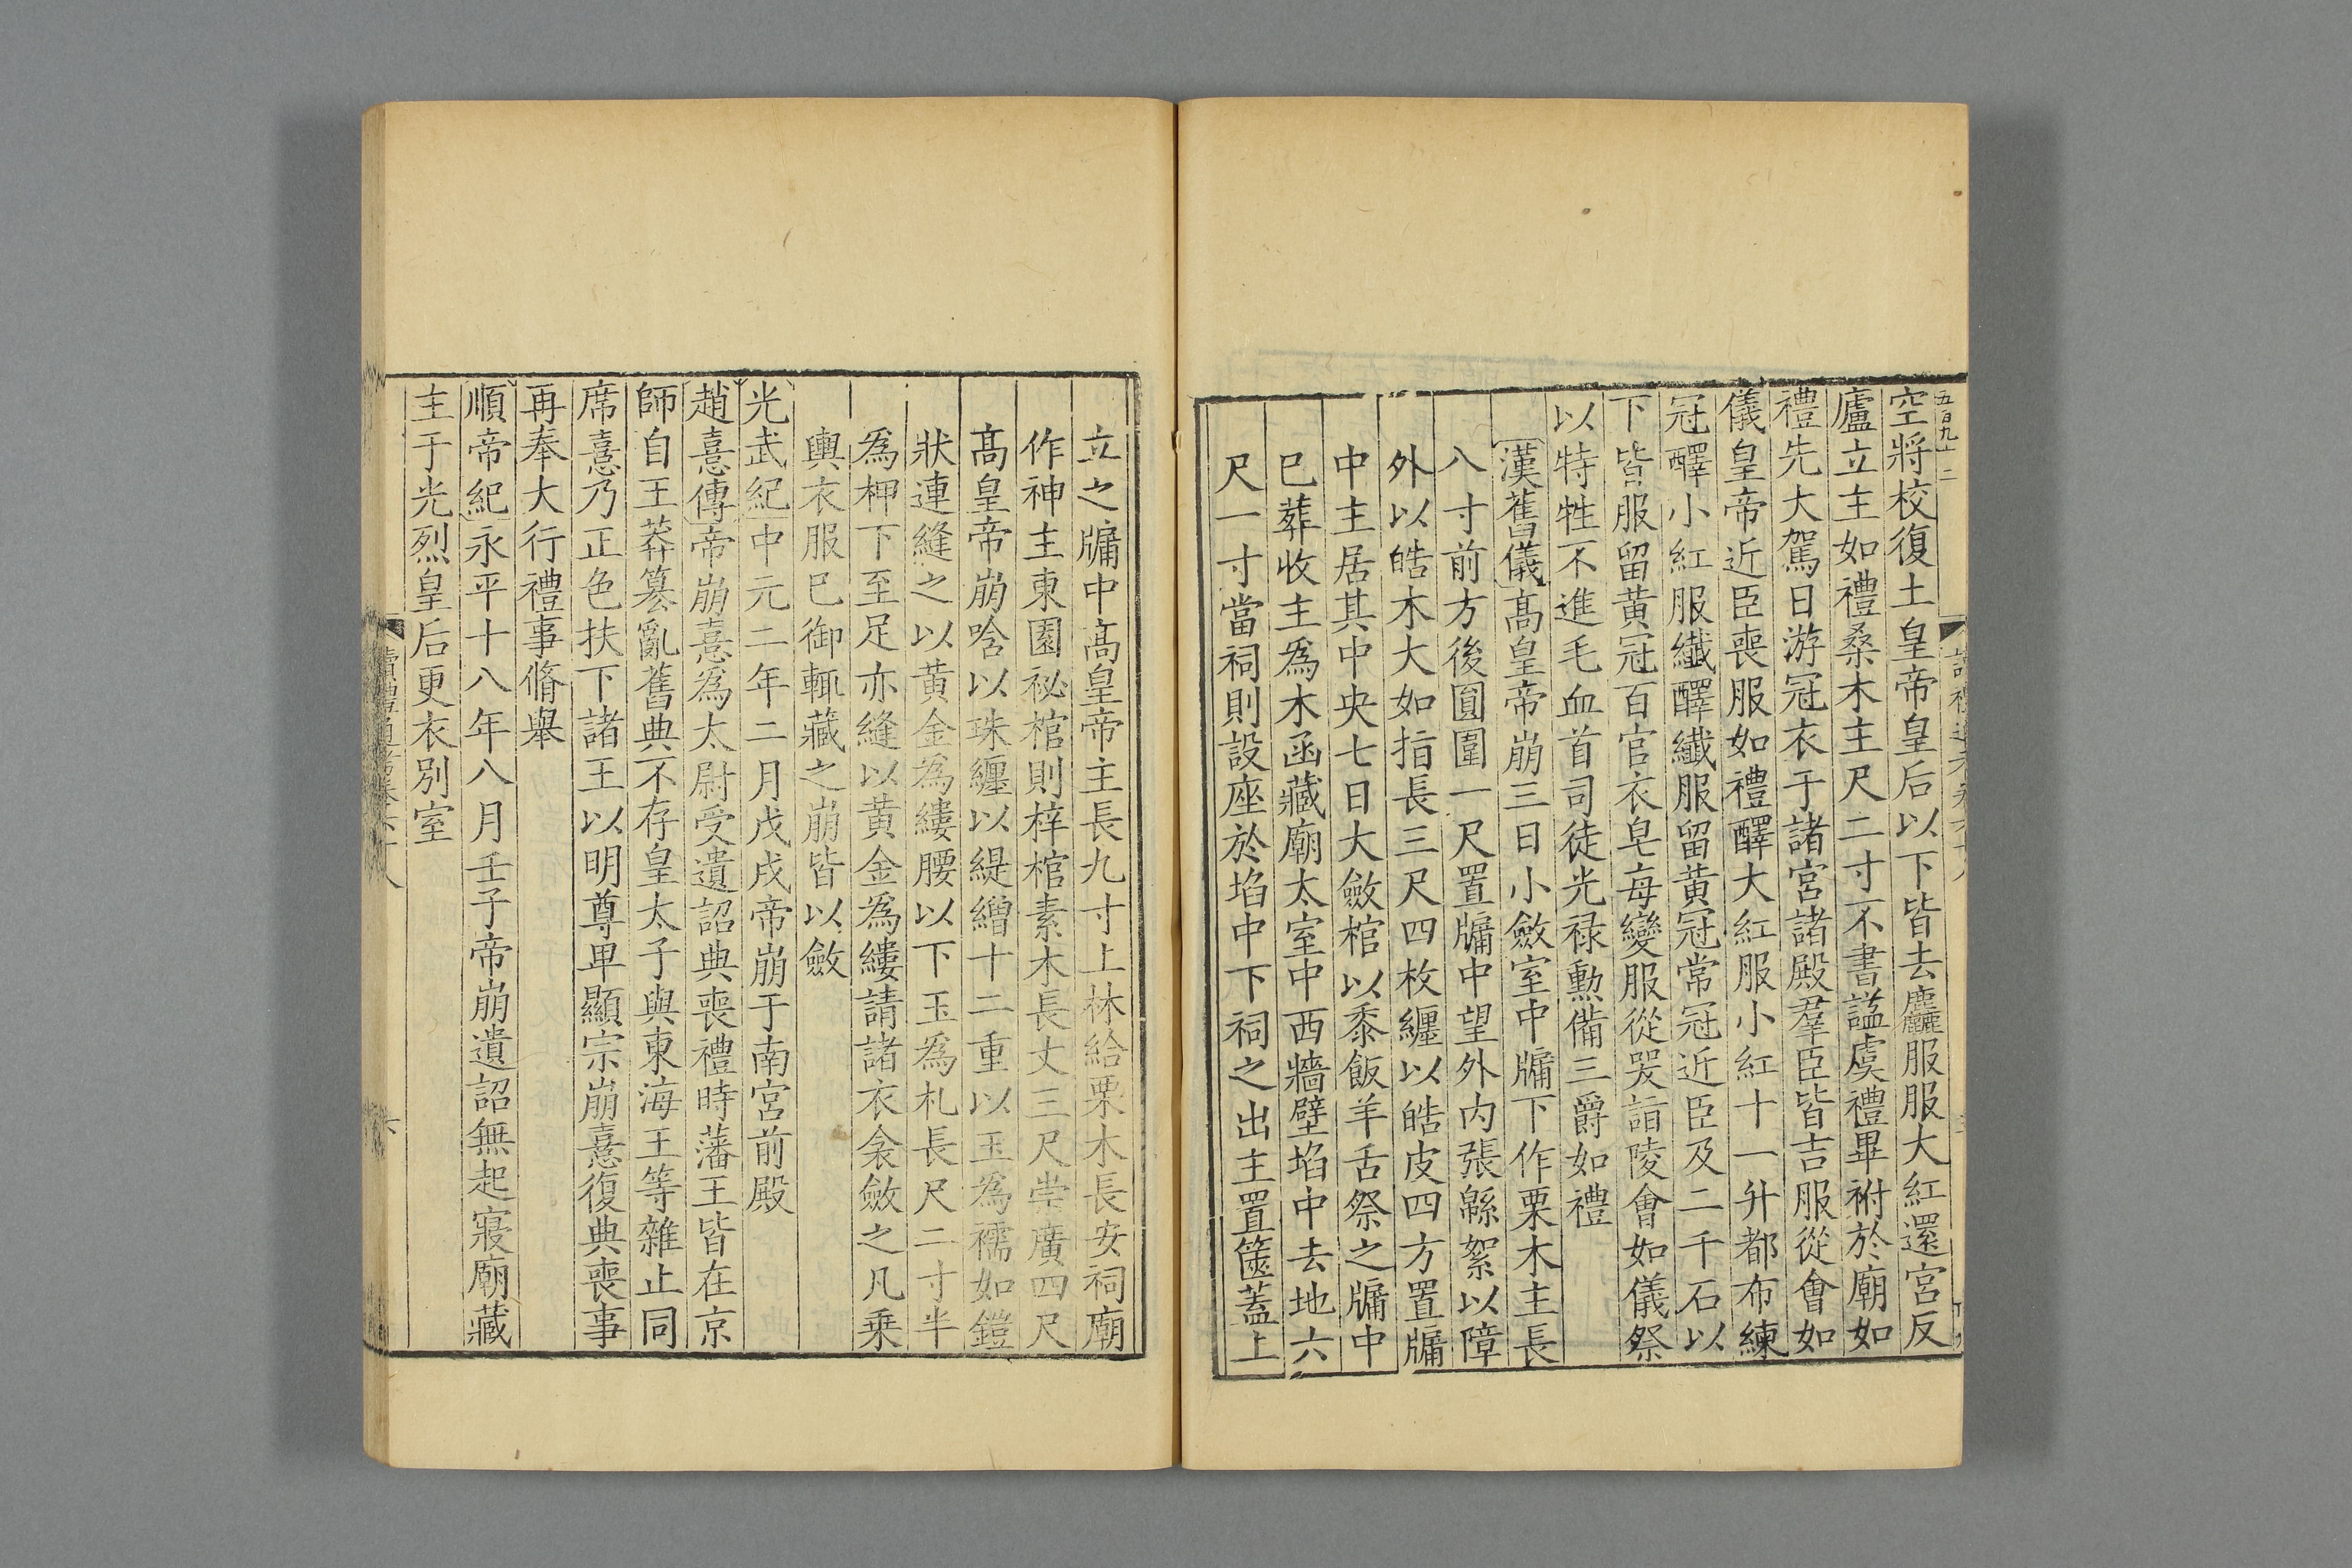 五百九十二
空將校復土皇帝皇后以下皆去麤服服大紅還宮反
廬立主如禮桑木主尺二寸不書謚虞禮畢祔於廟如
禮先大駕日游冠衣于諸宮諸殿羣臣皆吉服從會如
儀皇帝近臣喪服如禮醳大紅服小紅十一升都布練
冠醳小紅服纖醳纖服留黃冠常冠近臣及二千石以
下皆服留黃冠百官衣皂每變服從哭詣陵會如儀祭
以特牲不進毛血首司徒光祿勳備三爵如禮
漢舊儀高皇帝崩三日小斂室中牖下作栗木主長
八寸前方後圓圍一尺置牖中望外內張緜絮以障
外以皓木大如指長三尺四枚纏以皓皮四方置牖
中主居其中央七日大斂棺以黍飯羊舌祭之牖中
已葬收主為木函藏廟太室中西牆壁埳中去地六
尺一寸當祠則設座於埳中下祠之出主置篋蓋上
立之牖中高皇帝主長九寸上林給栗木長安祠廟
作神主東園祕棺則梓棺素木長丈三尺崇廣四尺
高皇帝崩唅以珠纏以緹繒十二重以玉為襦如鎧
狀連縫之以黃金為縷腰以下玉為札長尺二寸半
為柙下至足亦縫以黃金為縷請諸衣衾斂之凡乗
輿衣服已御輒藏之崩皆以斂
光武紀中元二年二月戊戌帝崩于南宮前殿
趙憙傳帝崩憙為太尉受遺詔典喪禮時藩王皆在京
師自王莽篡亂舊典不存皇太子與東海王等雜止同
席憙乃正色扶下諸王以明尊卑顯宗崩憙復典喪事
再奉大行禮事脩舉
順帝紀永平十八年八月壬子帝崩遺詔無起寢廟藏
主于光烈皇后更衣別室
讀禮通考卷六十八 六